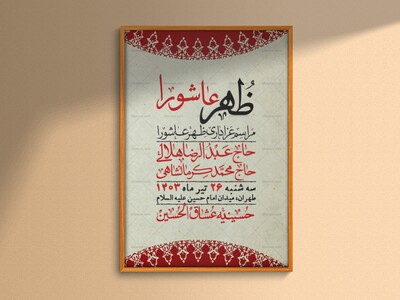 ظُهر عاشورا
مراسم عزاداری ظهر عاشورا
حاج عبدالرضا هلالی
حاج محمد کرمانشاهی
سه شنبه ۲۶ تیر ماه ۱۴۰۳
طهران، میدان امام حسین علیه السلام
حسینیه عشاق الحسین